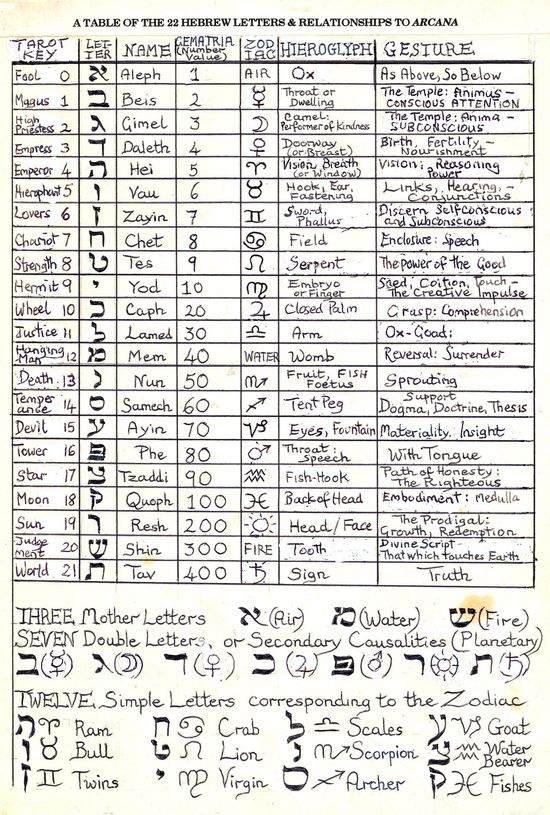 A TABLE OF THE 22 HEBREW LETTERS & RELATIONSHIPS TO ARCANA
TAROT KEY LETTER NAME GEMATRIA (Number Value) ZODIAC HIEROGLYPH GESTURE
Fool 0 א Aleph 1 AIR Ox As Above, So Below
Magus 1 ב Beis 2 ☿ Throat or Dwelling The Temple: Animus - CONSCIOUS ATTENTION
High Priestess 2 ג Gimel 3 ☽ Camel: Performer of Kindness The Temple: Anima - SUBCONSCIOUS
Empress 3 ד Daleth 4 ♀ Doorway (or Breast) Birth, Fertility - Nourishment
Emperor 4 ה Hei 5 ♈ Vision, Breath (or Window) Vision: Reasoning Power
Hierophant 5 ו Vau 6 ♉ Hook, Ear, Fastening Links, Hearing, - Conjunctions
Lovers 6 ז Zayin 7 ♊ Sword, Phallus Discern Selfconscious and Subconscious
Chariot 7 ח Chet 8 ♋ Field Enclosure: Speech
Strength 8 ט Tes 9 ♌ Serpent The power of the Good
Hermit 9 י Yod 10 ♍ Embryo or Finger Seed, Coition, Touch - The Creative Impulse
Wheel 10 כ Caph 20 ♃ Closed Palm Grasp: Comprehension
Justice 11 ל Lamed 30 ♎ Arm Ox-Goad:
Hanging Man 12 מ Mem 40 WATER Womb Reversal: Surrender
Death 13 נ Nun 50 ♏ Fruit, FISH Foetus Sprouting
Temperance 14 ס Samech 60 ♐ Tent Peg Support Dogma, Doctrine, Thesis
Devil 15 ע Ayin 70 ♑ Eyes, Fountain Materiality. Insight
Tower 16 פ Phe 80 ♂ Throat: Speech With Tongue
Star 17 צ Tzaddi 90 ♒ Fish-Hook Path of Honesty: The Righteous
Moon 18 ק Quoph 100 ♓ Back of Head Embodiment: Medulla
Sun 19 ר Resh 200 ☼ Head/Face The Prodigal: Growth, Redemption
Judgement 20 ש Shin 300 FIRE Tooth Divine Script - That which touches Earth
World 21 ת Tav 400 ♄ Sign Truth
THREE Mother Letters א (Air) מ (Water) ש (Fire)
SEVEN Double Letters, or Secondary Causalities (Planetary)
ב(☿) ג(☽) ד(♀) כ(♃) פ(♂) ר(☼) ת(♄)
TWELVE Simple Letters corresponding to the Zodiac
ה ♈ Ram ח ♋ Crab ל ♎ Scales ע ♑ Goat
ו ♉ Bull ט ♌ Lion נ ♏ Scorpion צ ♒ Water Bearer
ז ♊ Twins י ♍ Virgin ס ♐ Archer ק ♓ Fishes